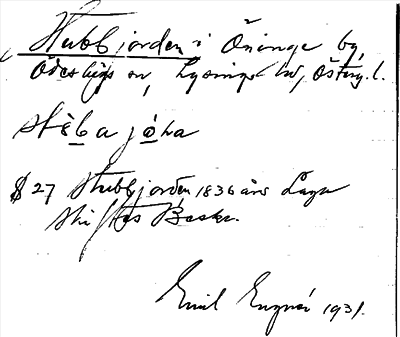 Stubbjorden i Öninge by,
Ödeshögs sn, Lysings hd, Österg. l.
stèba jóha
§ 27 Stubbjorden 1836 års Laga
Skiftes Beskr.
Emil 1931.